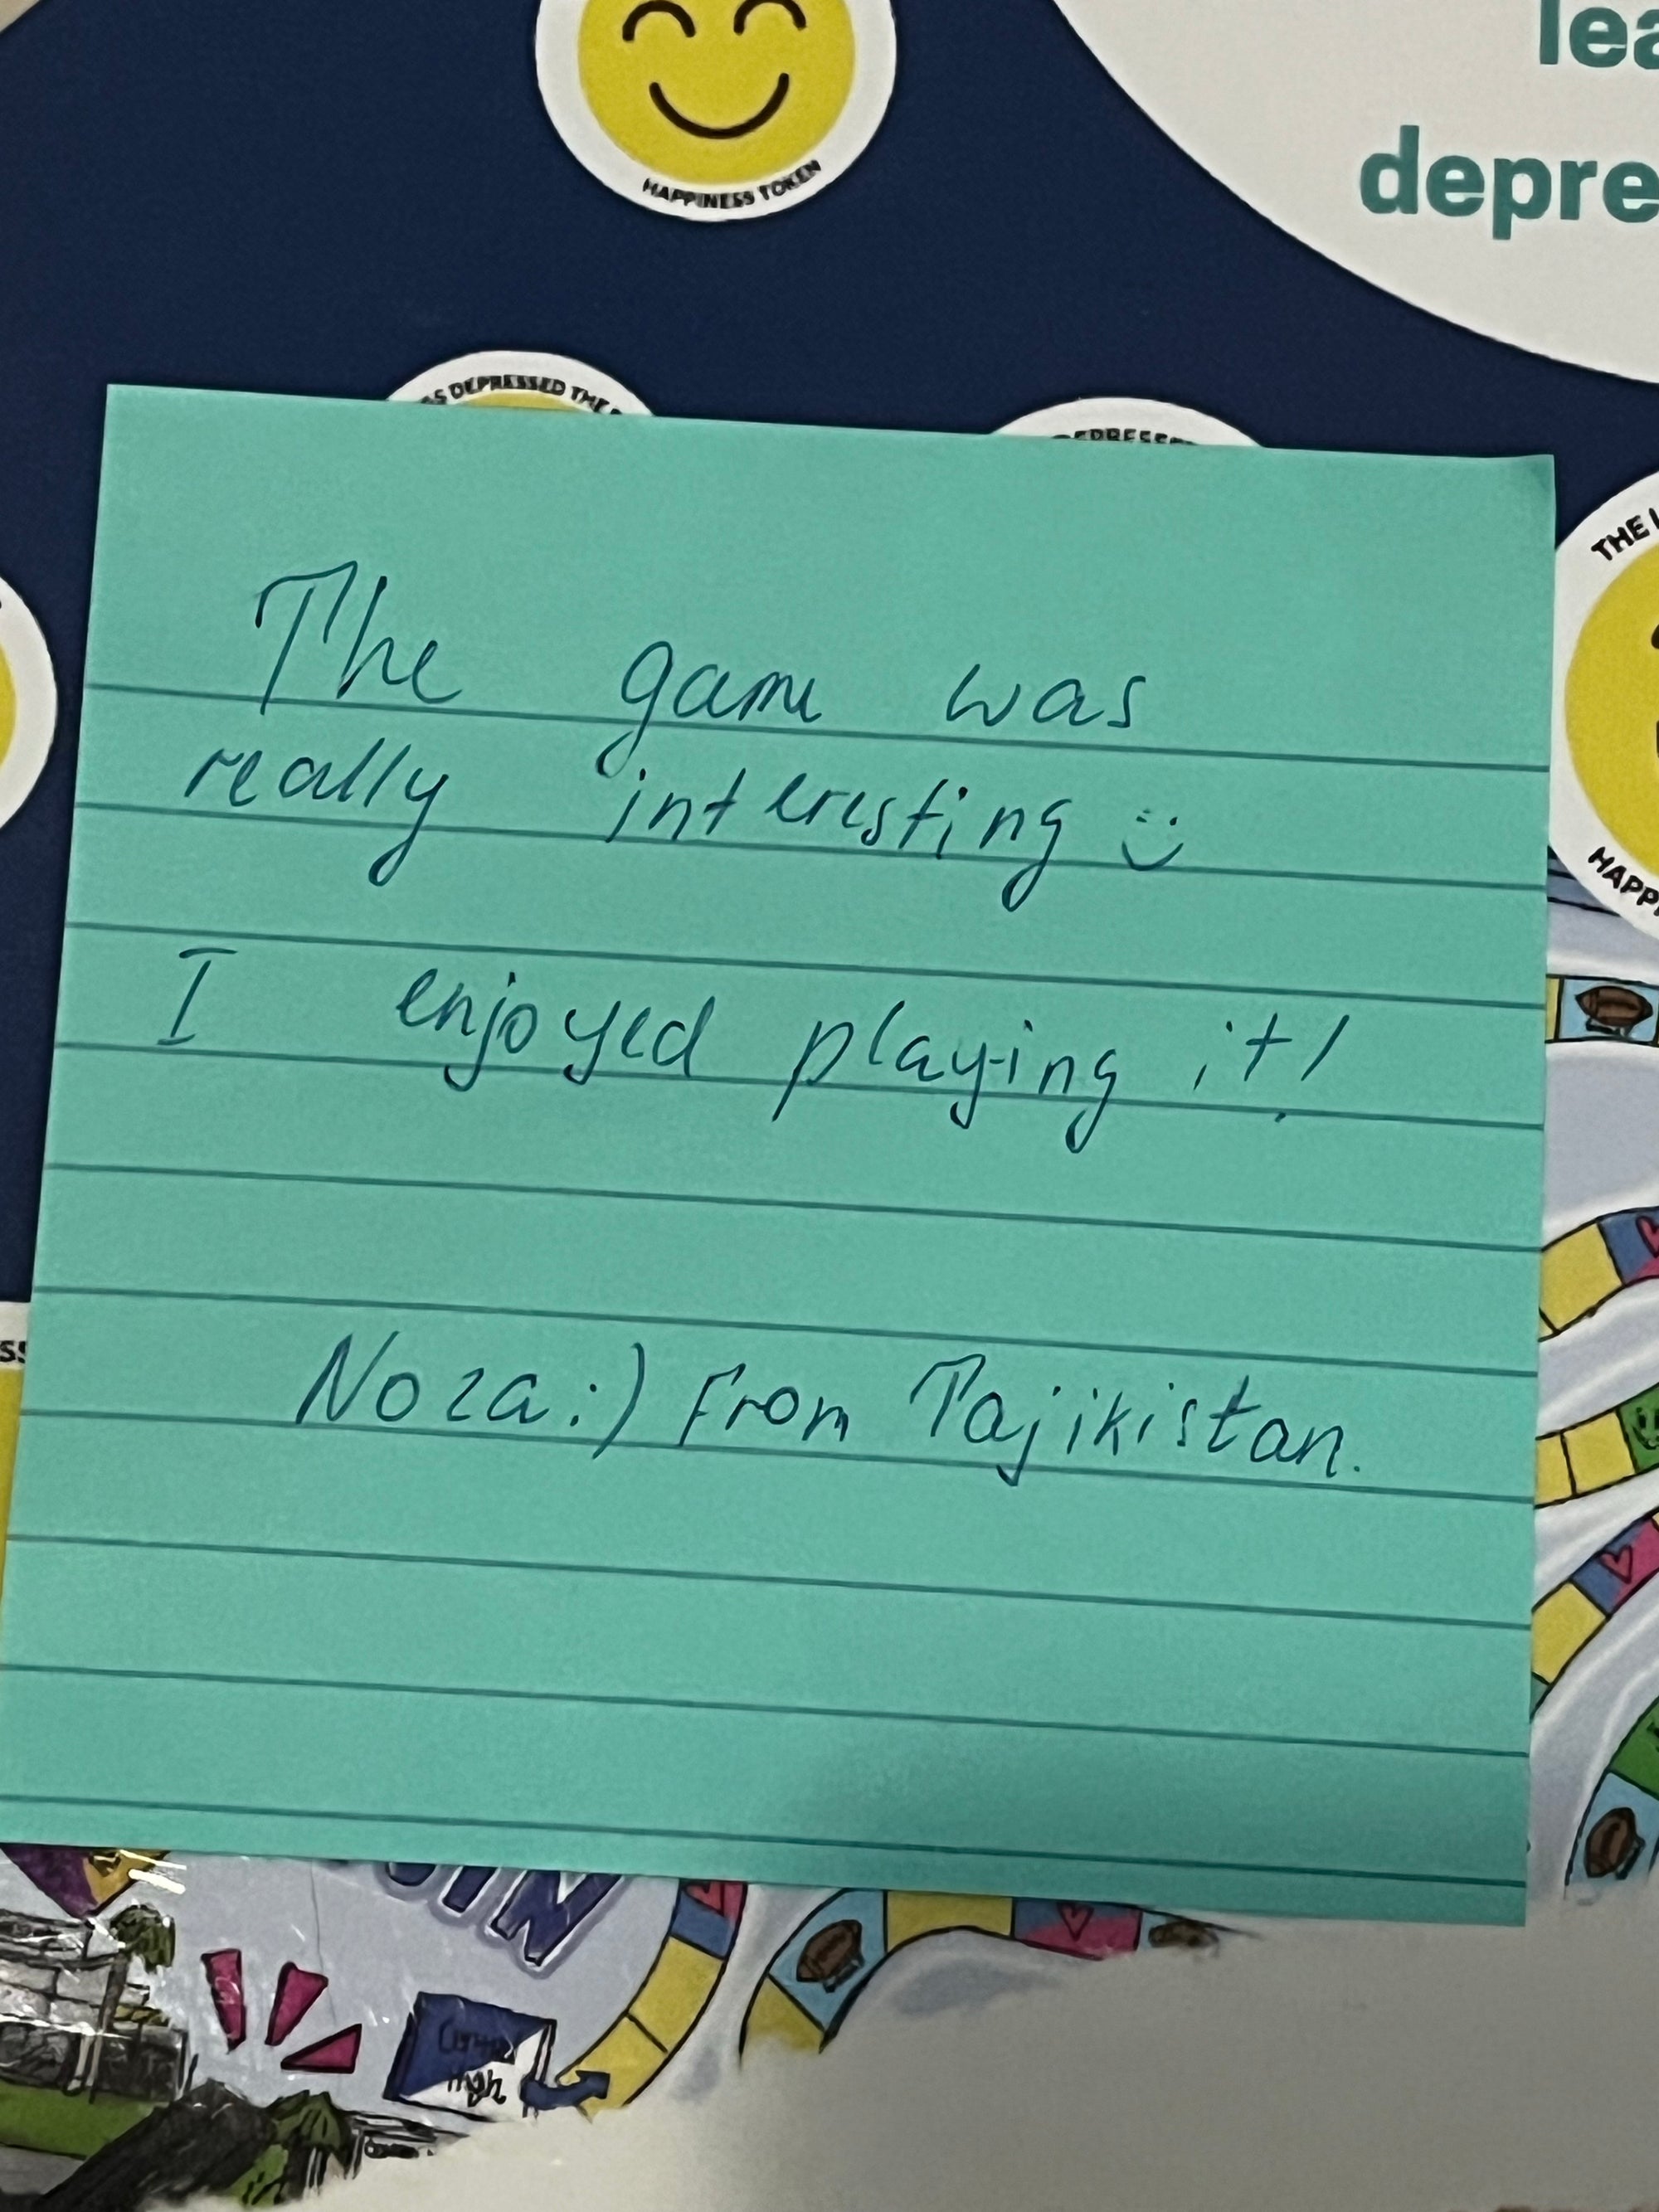 lea
depre
HAPPINESS TOKEN
S DEPRESSED THE
DEPRESSED
THE
HAPP
The game was
really interesting :)
I enjoyed playing it!
Noza:) from Tajikistan.
SS
High